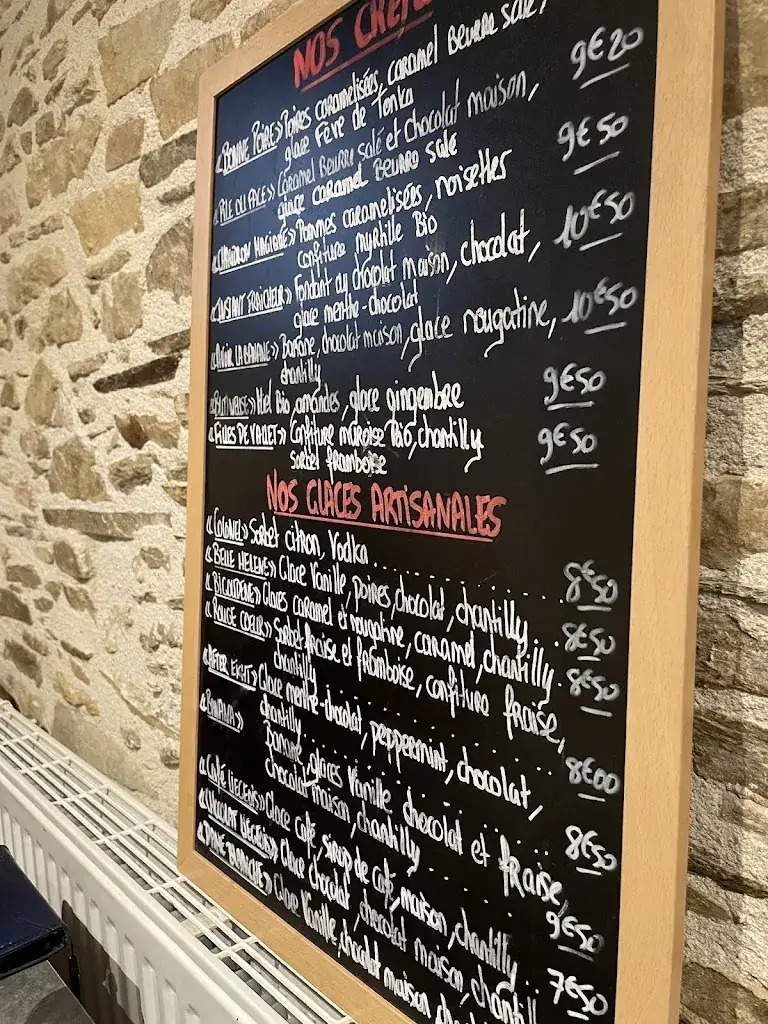 NOS CRÊP
«BONNE POIRE» Poires caramelisées, caramel Beurre salé, 9€20
glace Fève de Tonka
«PILE OU FACE» Caramel Beurre salé et chocolat maison, 9€50
glace caramel Beurre salé
«CHAUDRON MAGIQUE» Pommes caramelisées, noisettes 10€50
confiture myrtille Bio
«INSTANT FRAÎCHEUR» Fondant au chocolat maison, chocolat, 10€50
glace menthe-chocolat
LA BANANE» Banane, chocolat maison, glace nougatine,
chantilly 9€50
Miel Bio, amandes, glace gingembre 9€50
«FILLES DE Confiture Bio, chantilly
sorbet framboise
NOS GLACES ARTISANALES
«COLONEL» Sorbet citron, Vodka 8€50
«BELLE HELENE» Glace Vanille, poires, chocolat, chantilly 8€50
«BIGOUDENE» Glaces caramel et nougatine, caramel, chantilly 8€50
«ROUGE COEUR» Sorbet fraise et framboise, confiture fraise,
chantilly 8€00
«AFTER EIGHT» Glace menthe-chocolat, peppermint, chocolat,
chantilly 8€50
«BANANA» Banane, glaces Vanille chocolat et fraise,
chocolat maison, chantilly 9€50
«CAFÉ LIEGEOIS» Glace café, sirop de café, maison, chantilly 7€50
«CHOCOLAT LIEGEOIS» Glace chocolat, chocolat maison, chantill
«DAME BLANCHE» Glace Vanille, chocolat maison,